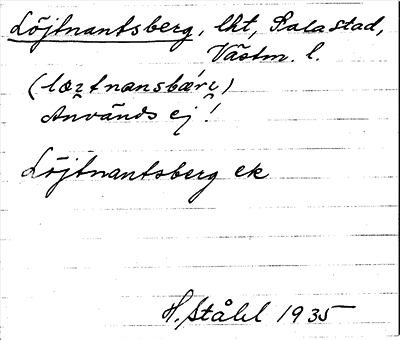 Löjtnantsberg, lht, Sala stad,
Västm. l.
(lœztnansbærɩ)
Används ej!
Löjtnantsberg ek
H. Ståhl 1935